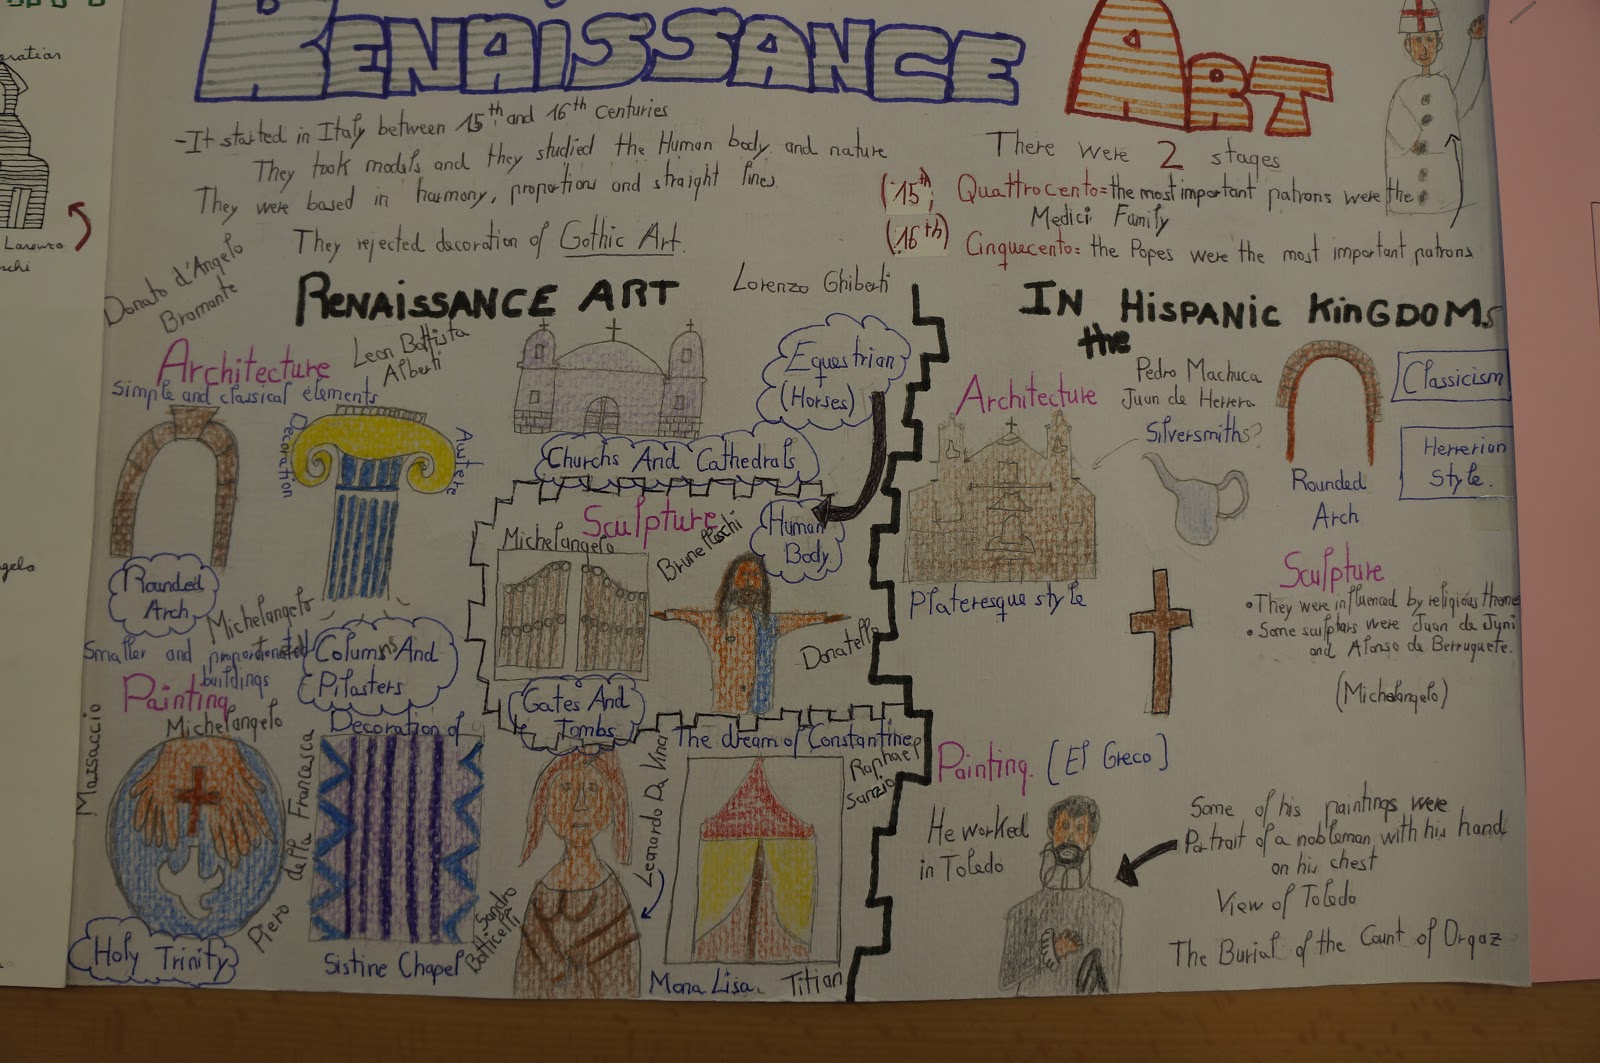 RENAISSANCE ART
-It started in Italy between 15th and 16th centuries
They took models and they studied the Human body and nature
They were based in harmony, proportions and straight lines.
They rejected decoration of Gothic Art.
There were 2 stages
(15th) Quattrocento= the most important patrons were the
Medici Family
(16th) Cinquecento= the Popes were the most important patrons
Lorenzo
Donato d'Angelo
Bramante
RENAISSANCE ART
Lorenzo Ghiberti
Architecture
Simple and classical elements
Leon Battista
Alberti
Decoration
Austere
Churchs And Cathedrals
Equestrian
(Horses)
Rounded
Arch
Michelangelo
Smaller and proportionated
buildings
Columns And
Pilasters
Sculpture
Michelangelo
Brunelleschi
Human
Body
Donatello
Gates And
Tombs
Painting
Michelangelo
Massaccio
Holy Trinity
Piero
della Francesca
Decoration of
Sistine Chapel
Sandro
Botticelli
Leonardo Da Vinci
The dream of Constantine
Raphael
Sanzio
Mona Lisa.
Titian
IN the HISPANIC KINGDOMS
Architecture
Pedro Machuca
Juan de Herrera
Silversmiths?
Plateresque style
Rounded
Arch
Classicism
Herrerian
Style.
Sculpture
• They were influenced by religious theme
• Some sculptors were Juan de Juni
and Alfonso de Berruguete.
(Michelangelo)
Painting. [El Greco]
He worked
in Toledo
Some of his paintings were
Portrait of a nobleman with his hand
on his chest
View of Toledo
The Burial of the Count of Orgaz